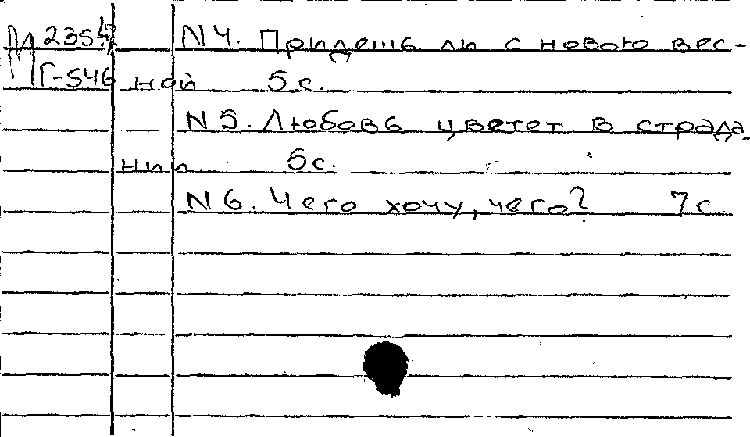 М 2354 N4. Придешь ли с новою вес-
Г-546 ной 5 с.
N5. Любовь цветет в страда
нии 5с.
N6. Чего хочу, чего? 7с